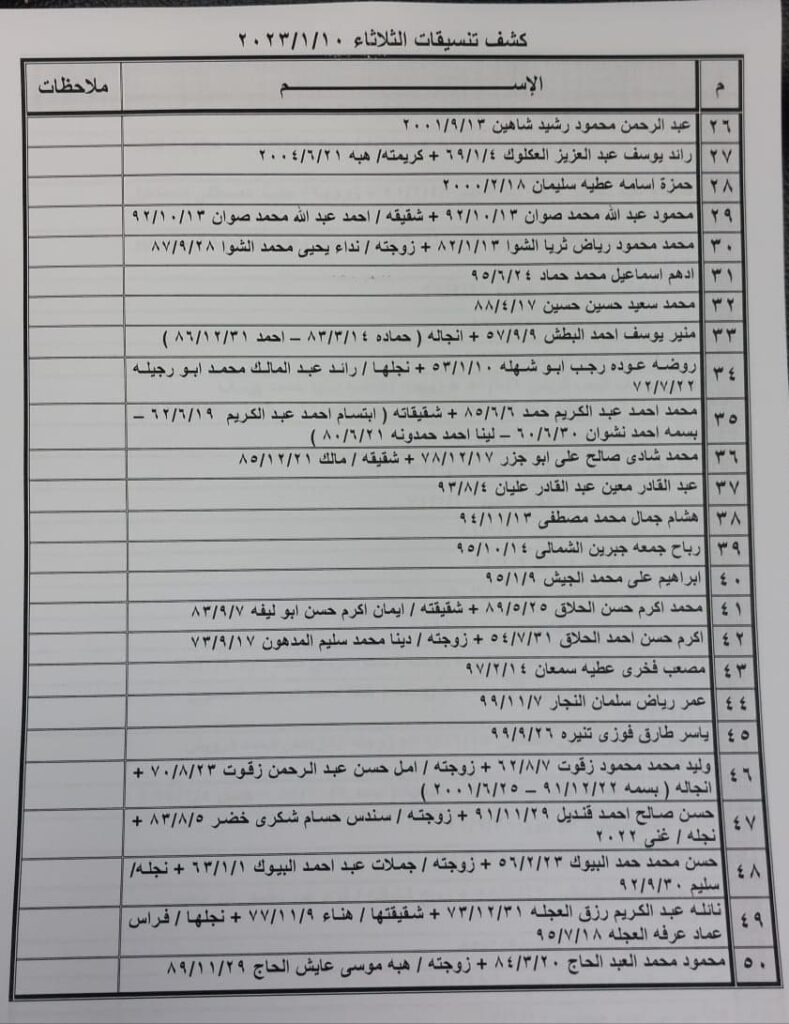 كشف تنسيقات الثلاثاء ٢٠٢٣/١/١٠
م الإســـم ملاحظات
٢٦ عبد الرحمن محمود رشيد شاهين ٢٠٠١/٩/١٣
٢٧ رائد يوسف عبد العزيز العكلوك ٦٩/١/٤ + كريمته/ هبه ٢٠٠٤/٦/٢١
٢٨ حمزة اسامه عطيه سليمان ٢٠٠٠/٢/١٨
٢٩ محمود عبد الله محمد صوان ٩٢/١٠/١٣ + شقيقه / احمد عبد الله محمد صوان ٩٢/١٠/١٣
٣٠ محمد محمود رياض ثريا الشوا ٨٢/١/١٣ + زوجته / نداء يحيى محمد الشوا ٨٧/٩/٢٨
٣١ ادهم اسماعيل محمد حماد ٩٥/٦/٢٤
٣٢ محمد سعيد حسين حسين ٨٨/٤/١٧
٣٣ منير يوسف احمد البطش ٥٧/٩/٩ + انجاله ( حماده ٨٣/٣/١٤ – احمد ٨٦/١٢/٣١ )
٣٤ روضه عوده رجب ابو شهله ٥٣/١/١٠ + نجلها / رائد عبد المالك محمد ابو رجيله
٧٢/٧/٢٢
٣٥ محمد احمد عبد الكريم حمد ٨٥/٦/٦ + شقيقاته ( ابتسام احمد عبد الكريم ٦٢/٦/١٩ –
بسمه احمد نشوان ٦٠/٦/٣٠ – لينا احمد حمدونه ٨٠/٦/٢١ )
٣٦ محمد شادى صالح على ابو جزر ٧٨/١٢/١٧ + شقيقه / مالك ٨٥/١٢/٢١
٣٧ عبد القادر معين عبد القادر عليان ٩٣/٨/٤
٣٨ هشام جمال محمد مصطفى ٩٤/١١/١٣
٣٩ رباح جمعه جبرين الشمالى ٩٥/١٠/١٤
٤٠ ابراهيم على محمد الجيش ٩٥/١/٩
٤١ محمد اكرم حسن الحلاق ٨٩/٥/٢٥ + شقيقته / ايمان اكرم حسن ابو ليفه ٨٣/٩/٧
٤٢ اكرم حسن احمد الحلاق ٥٤/٧/٣١ + زوجته / دينا محمد سليم المدهون ٧٣/٩/١٧
٤٣ مصعب فخرى عطيه سمعان ٩٧/٢/١٤
٤٤ عمر رياض سلمان النجار ٩٩/١١/٧
٤٥ ياسر طارق فوزى تنيره ٩٩/٩/٢٦
٤٦ وليد محمد محمود زقوت ٦٢/٨/٧ + زوجته / امل حسن عبد الرحمن زقوت ٧٠/٨/٢٣ +
انجاله ( بسمه ٩١/١٢/٢٢ – ٢٠٠١/٦/٢٥ )
٤٧ حسن صالح احمد قنديل ٩١/١١/٢٩ + زوجته / سندس حسام شكرى خضر ٨٣/٨/٥ +
نجله / غنى ٢٠٢٢
٤٨ حسن محمد حمد البيوك ٥٦/٢/٢٣ + زوجته / جملات عبد احمد البيوك ٦٣/١/١ + نجله/
سليم ٩٢/٩/٣٠
٤٩ نائله عبد الكريم رزق العجله ٧٣/١٢/٣١ + شقيقتها / هناء ٧٧/١١/٩ + نجلها / فراس
عماد عرفه العجله ٩٥/٧/١٨
٥٠ محمود محمد العبد الحاج ٨٤/٣/٢٠ + زوجته / هبه موسى عايش الحاج ٨٩/١١/٢٩